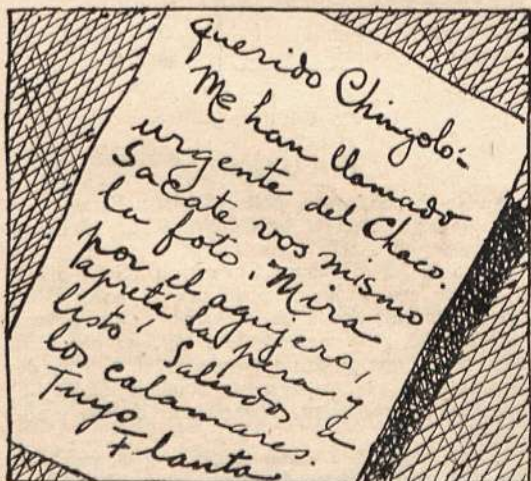 querido Chingolo:
Me han llamado
urgente del Chaco.
Sacate vos mismo
la foto. Mirá
por el agujero,
apretá la pera y
listo! Saludos a
los calamares.
Tuyo
Flauta